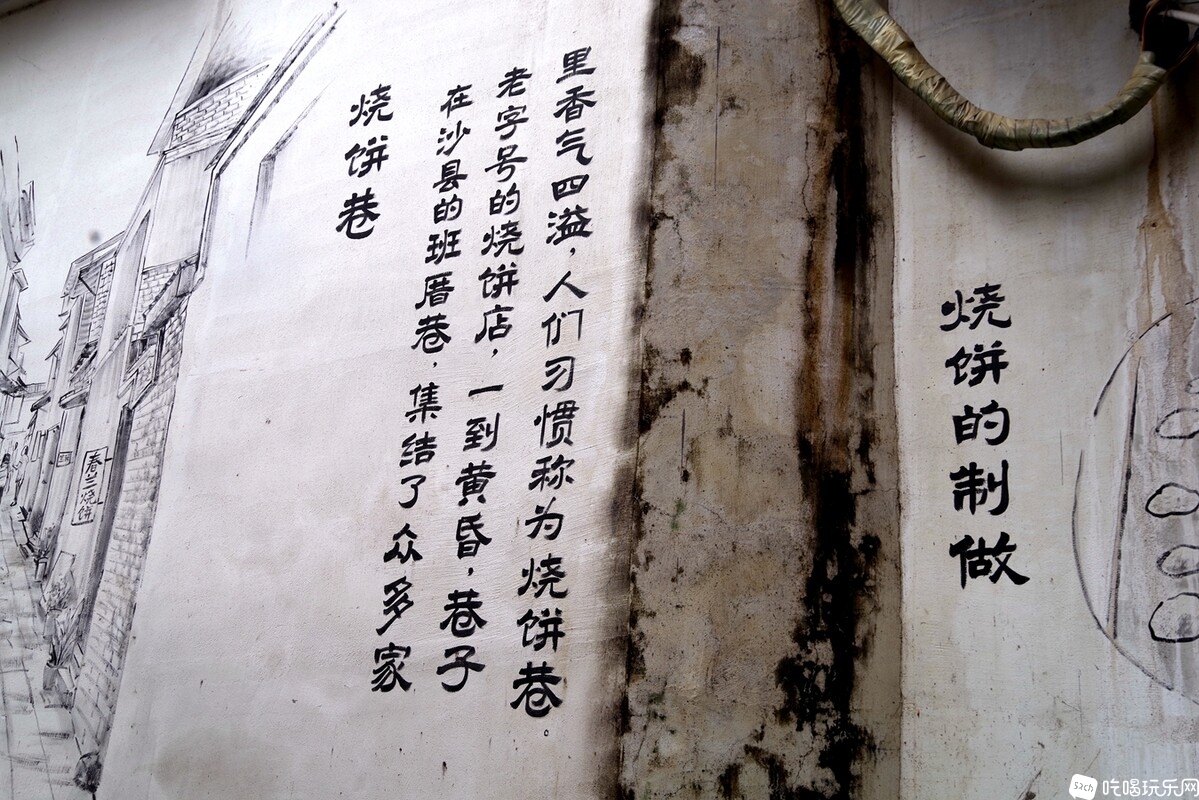 烧饼巷
在沙县的班厝巷，集结了众多家
老字号的烧饼店，一到黄昏，巷子
里香气四溢，人们习惯称为烧饼巷。
烧饼的制做
春兰烧饼
sach 吃喝玩乐网